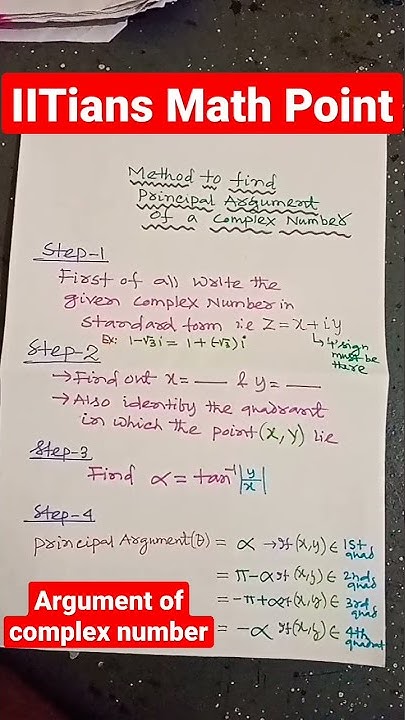 IITians Math Point
Method to find
Principal Argument
of a Complex Number
Step-1
First of all write the
given Complex Number in
standard form i.e Z = x + iy
Ex: 1-√3i = 1 + (-√3) i
↳ '+' sign
must be
there
Step-2
→ Find out x = ___ & y = ___
→ Also identify the quadrant
in which the point (x, y) lie
Step-3
Find α = tan⁻¹ |y/x|
Step-4
principal Argument (θ) = α → if (x,y) ∈ 1st quad
= π - α if (x,y) ∈ 2nd quad
= -π + α if (x,y) ∈ 3rd quad
= -α if (x,y) ∈ 4th quadrat
Argument of
complex number